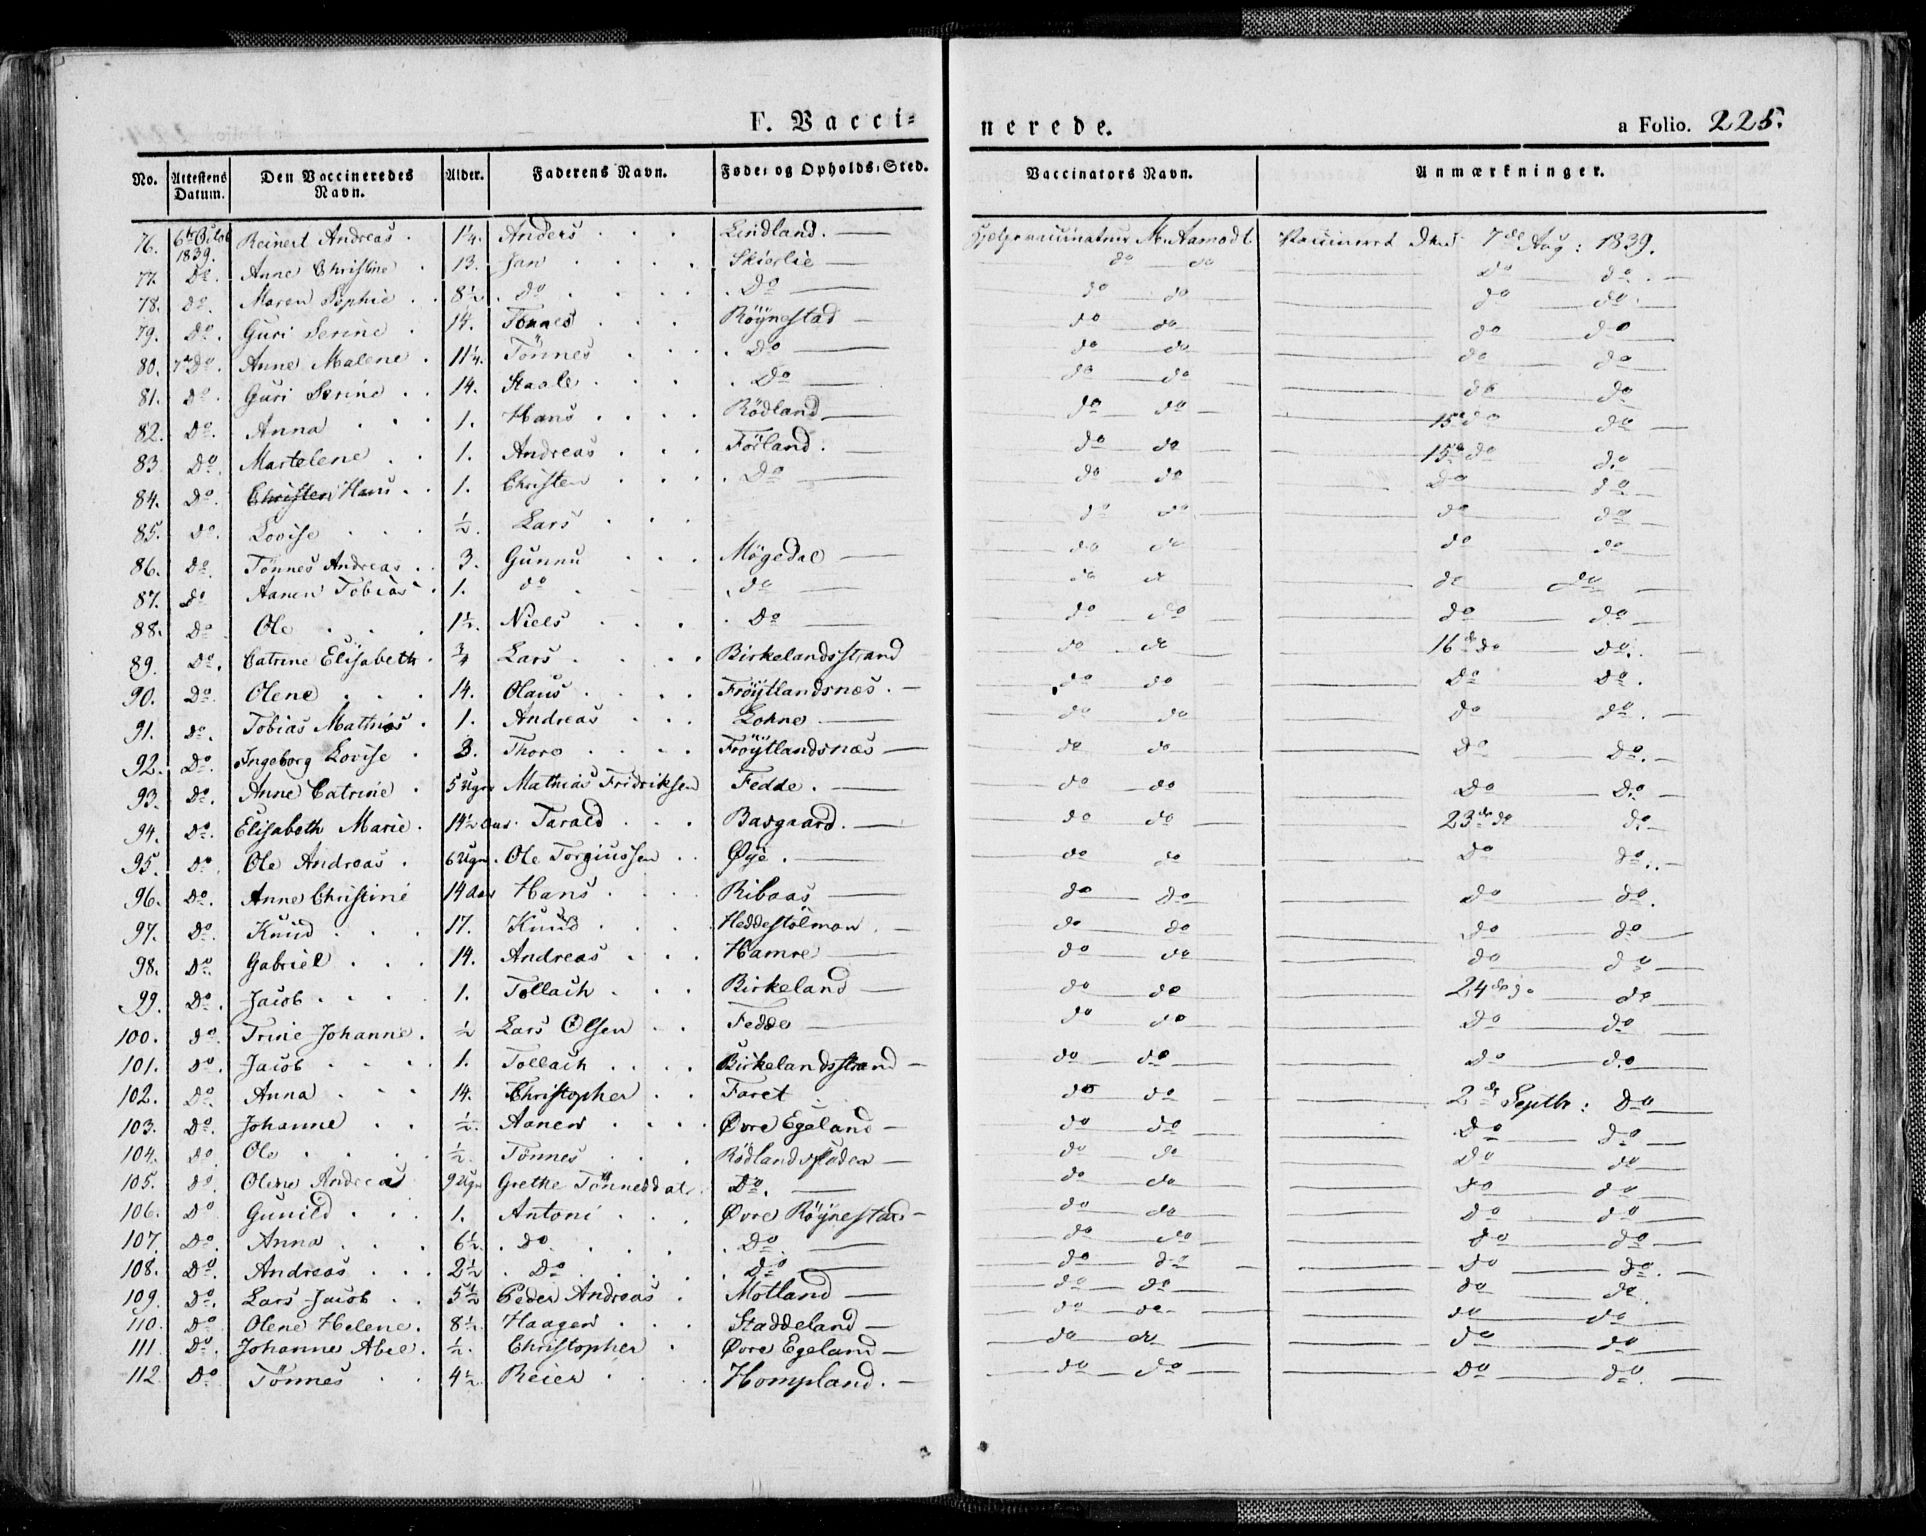 F. Vacci=
nerede.
a Folio. 225.
No. Attestens Datum. Den Vaccineredes Navn. Alder. Faderens Navn. Føde= og Opholds=Sted. Vaccinators Navn. Anmærkninger.
76. 6te Octob 1839. Reinert Andreas. 1/4. Anders Lindland. Hjelpevaccinateur M. Aamodt Vaccineret den 7de Aug: 1839.
77. Do. Anne Christine 13. Jan Skierlie do do Do do.
78. Do. Maren Sophie 8 1/2. do Do do do do do
79. Do. Guri Serine 14. Tønnes Röÿnestad do do do do
80. 7de Do. Anne Malene 11 1/4. Tönnes Do do do do do
81. Do. Guri Serine 14. Staale Do do do do do
82. Do. Anna 1. Hans Rödland do do 15de do do
83. Do. Martelene 1. Andreas Förland. do do 15de do do
84. Do. Hans 1. Christen Do do do Do do
85. Do. Lovise 1/2. Lars do do do do
86. Do. Tönnes Andreas 3. Gunnu Mögedal do do do do
87. Do Aanen Tobias 1. do do do do do do
88. Do. Ole 1 1/2. Niels Do do do do do
89. Do. Catrine Elisabeth 3/4 Lars Birkelandsstrand do do 16de do do.
90. Do. Olene 14. Olaus Fröÿtlandsnæs. do do Do Do.
91. Do. Tobias Mathias 1. Andreas Lohne do do Do do.
92. Do. Ingeborg Lovise 3. Thore Fröÿtlandsnæs do do Do Do.
93. Do. Anne Catrine 5 Ugr Mathias Fridriksen Fedde. do do Do Do.
94. Do. Elisabeth Marie. 14 1/2 Tarald Basgaard. do do 23de do do
95. Do. Ole Andreas 6 Ugr. Ole Torgiussen Øÿe. do do Do do.
96. Do. Anne Christine 14 Hans Ribaas do do do do.
97. Do. Knud 17. Knud Heddestölmon. do do do do
98. Do. Gabriel 14. Andreas Hamre do do do do
99. Do. Jacob 1. Tollach Birkeland do do 24de do do
100. do. Trine Johanne. 1/2 Lars Olsen Fedde do do Do do
101. do. Jacob 1. Tollach Birkelandsstrand do do Do do
102. Do. Anna 14. Christopher Faret do do 2de Septbr: Do
103. Do. Johanne 1/2. Aanen Øvre Egeland do do Do do
104. do Ole 1/2. Tönnes Rödlandsfloden do do Do do
105. do. Olene Andrea 9 Ugr Grethe Tönnesdatr. Do. do do do do
106. do Gunild 1. Antoni Øvre Röÿnestad do do Do do
107. Do. Anna 6 1/2. do Do. do do Do do
108. Do. Andreas 2 1/2 Do Do do do Do do.
109. Do. Lars Jacob 5 1/2 Peder Andreas Motland do do do do.
110. Do Olene Helene. 8 1/2. Haagen Staddeland do do do do
111. Do. Johanne Abel. 1/2. Christopher Øvre Egeland do do do do
112. Do Tönnes 4 1/2. Reier Hompland. do do Do do.